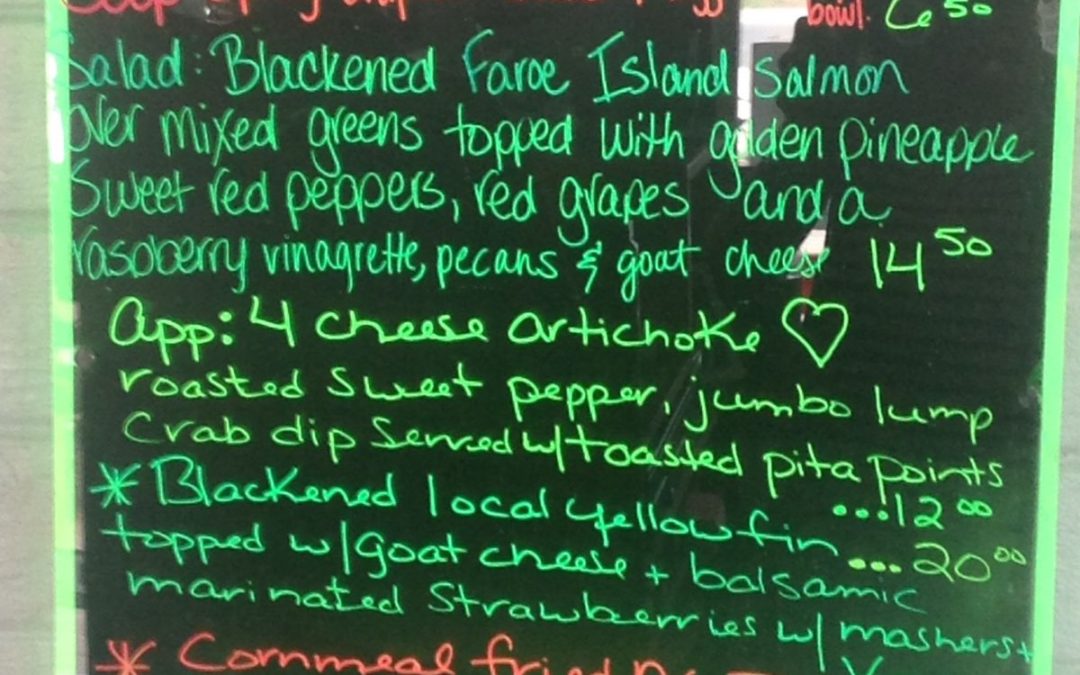 bowl. 6 50
Salad: Blackened Faroe Island Salmon
over mixed greens topped with golden pineapple
Sweet red peppers, red grapes and a
raspberry vinagrette, pecans & goat cheese 14 50
App: 4 cheese artichoke ♡
roasted sweet pepper, jumbo lump
crab dip served w/toasted pita points
...12 00
* Blackened local yellowfin ...20 00
topped w/goat cheese + balsamic
marinated strawberries w/ mashers +
* Cornmeal fried